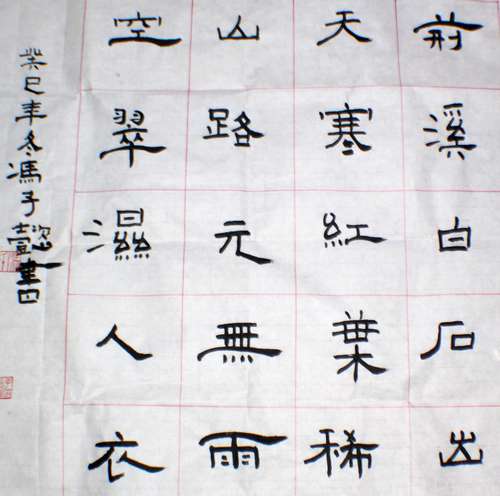 荆溪白石出
天寒紅葉稀
山路元無雨
空翠濕人衣
癸巳年冬馮子懿書